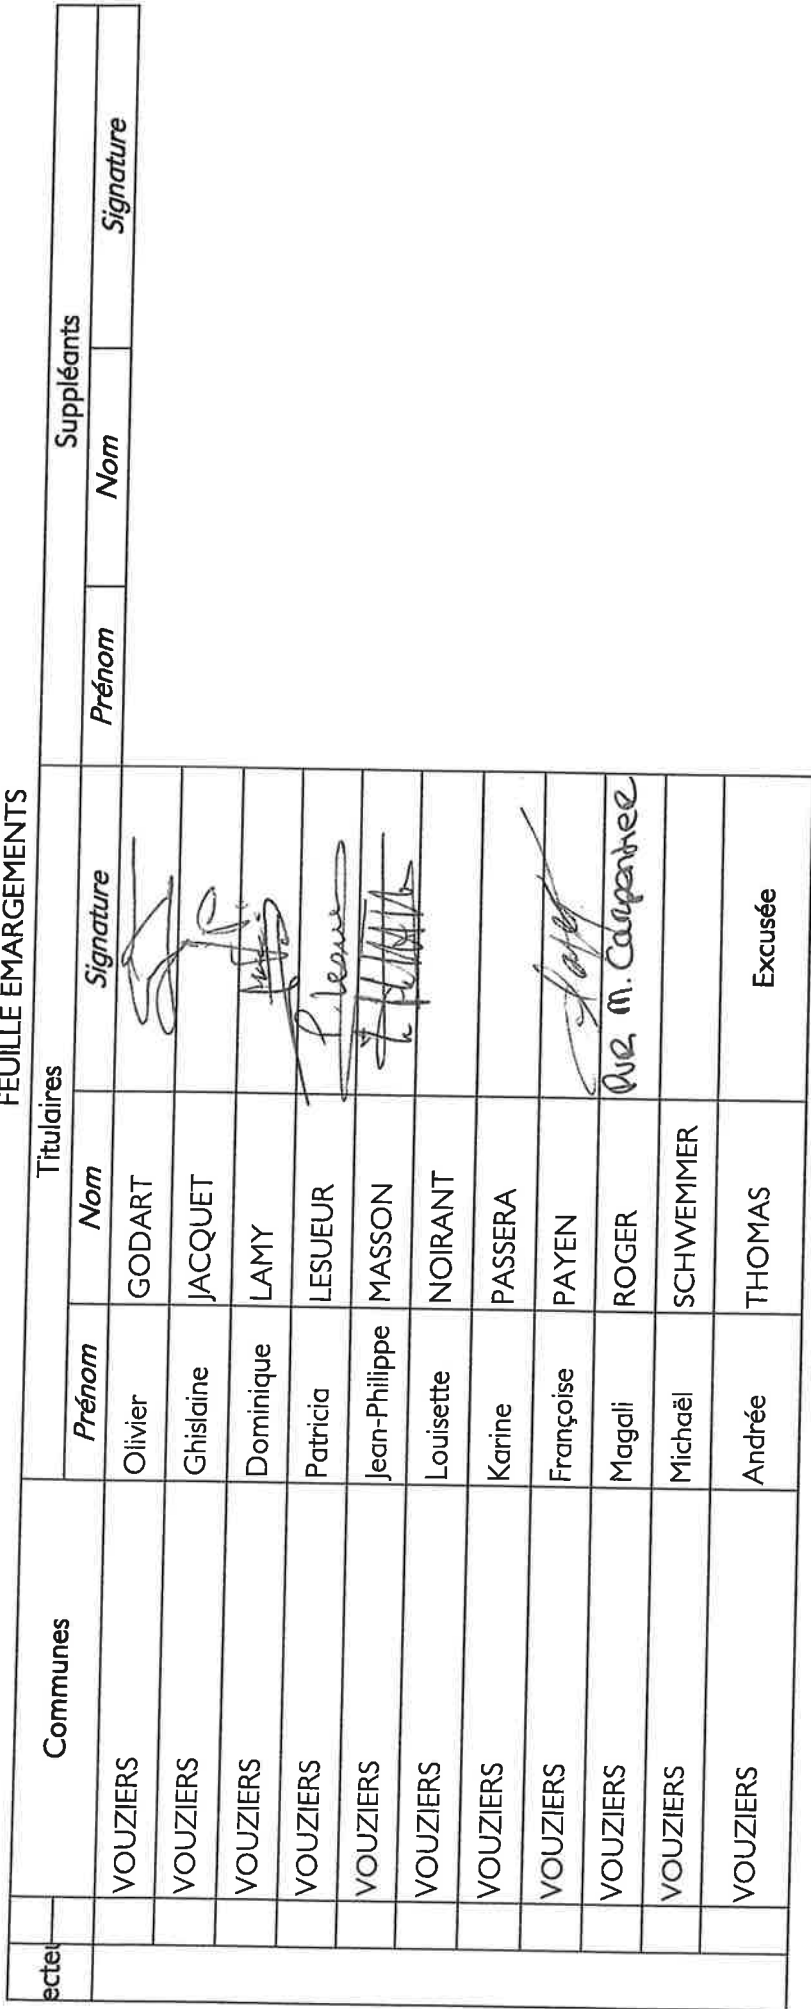 FEUILLE EMARGEMENTS
ecteu Communes Titulaires Suppléants
Prénom Nom Signature Prénom Nom Signature
VOUZIERS Olivier GODART
VOUZIERS Ghislaine JACQUET
VOUZIERS Dominique LAMY
VOUZIERS Patricia LESUEUR
VOUZIERS Jean-Philippe MASSON
VOUZIERS Louisette NOIRANT
VOUZIERS Karine PASSERA
VOUZIERS Françoise PAYEN
VOUZIERS Magali ROGER M. Carpentier
VOUZIERS Michaël SCHWEMMER
VOUZIERS Andrée THOMAS Excusée